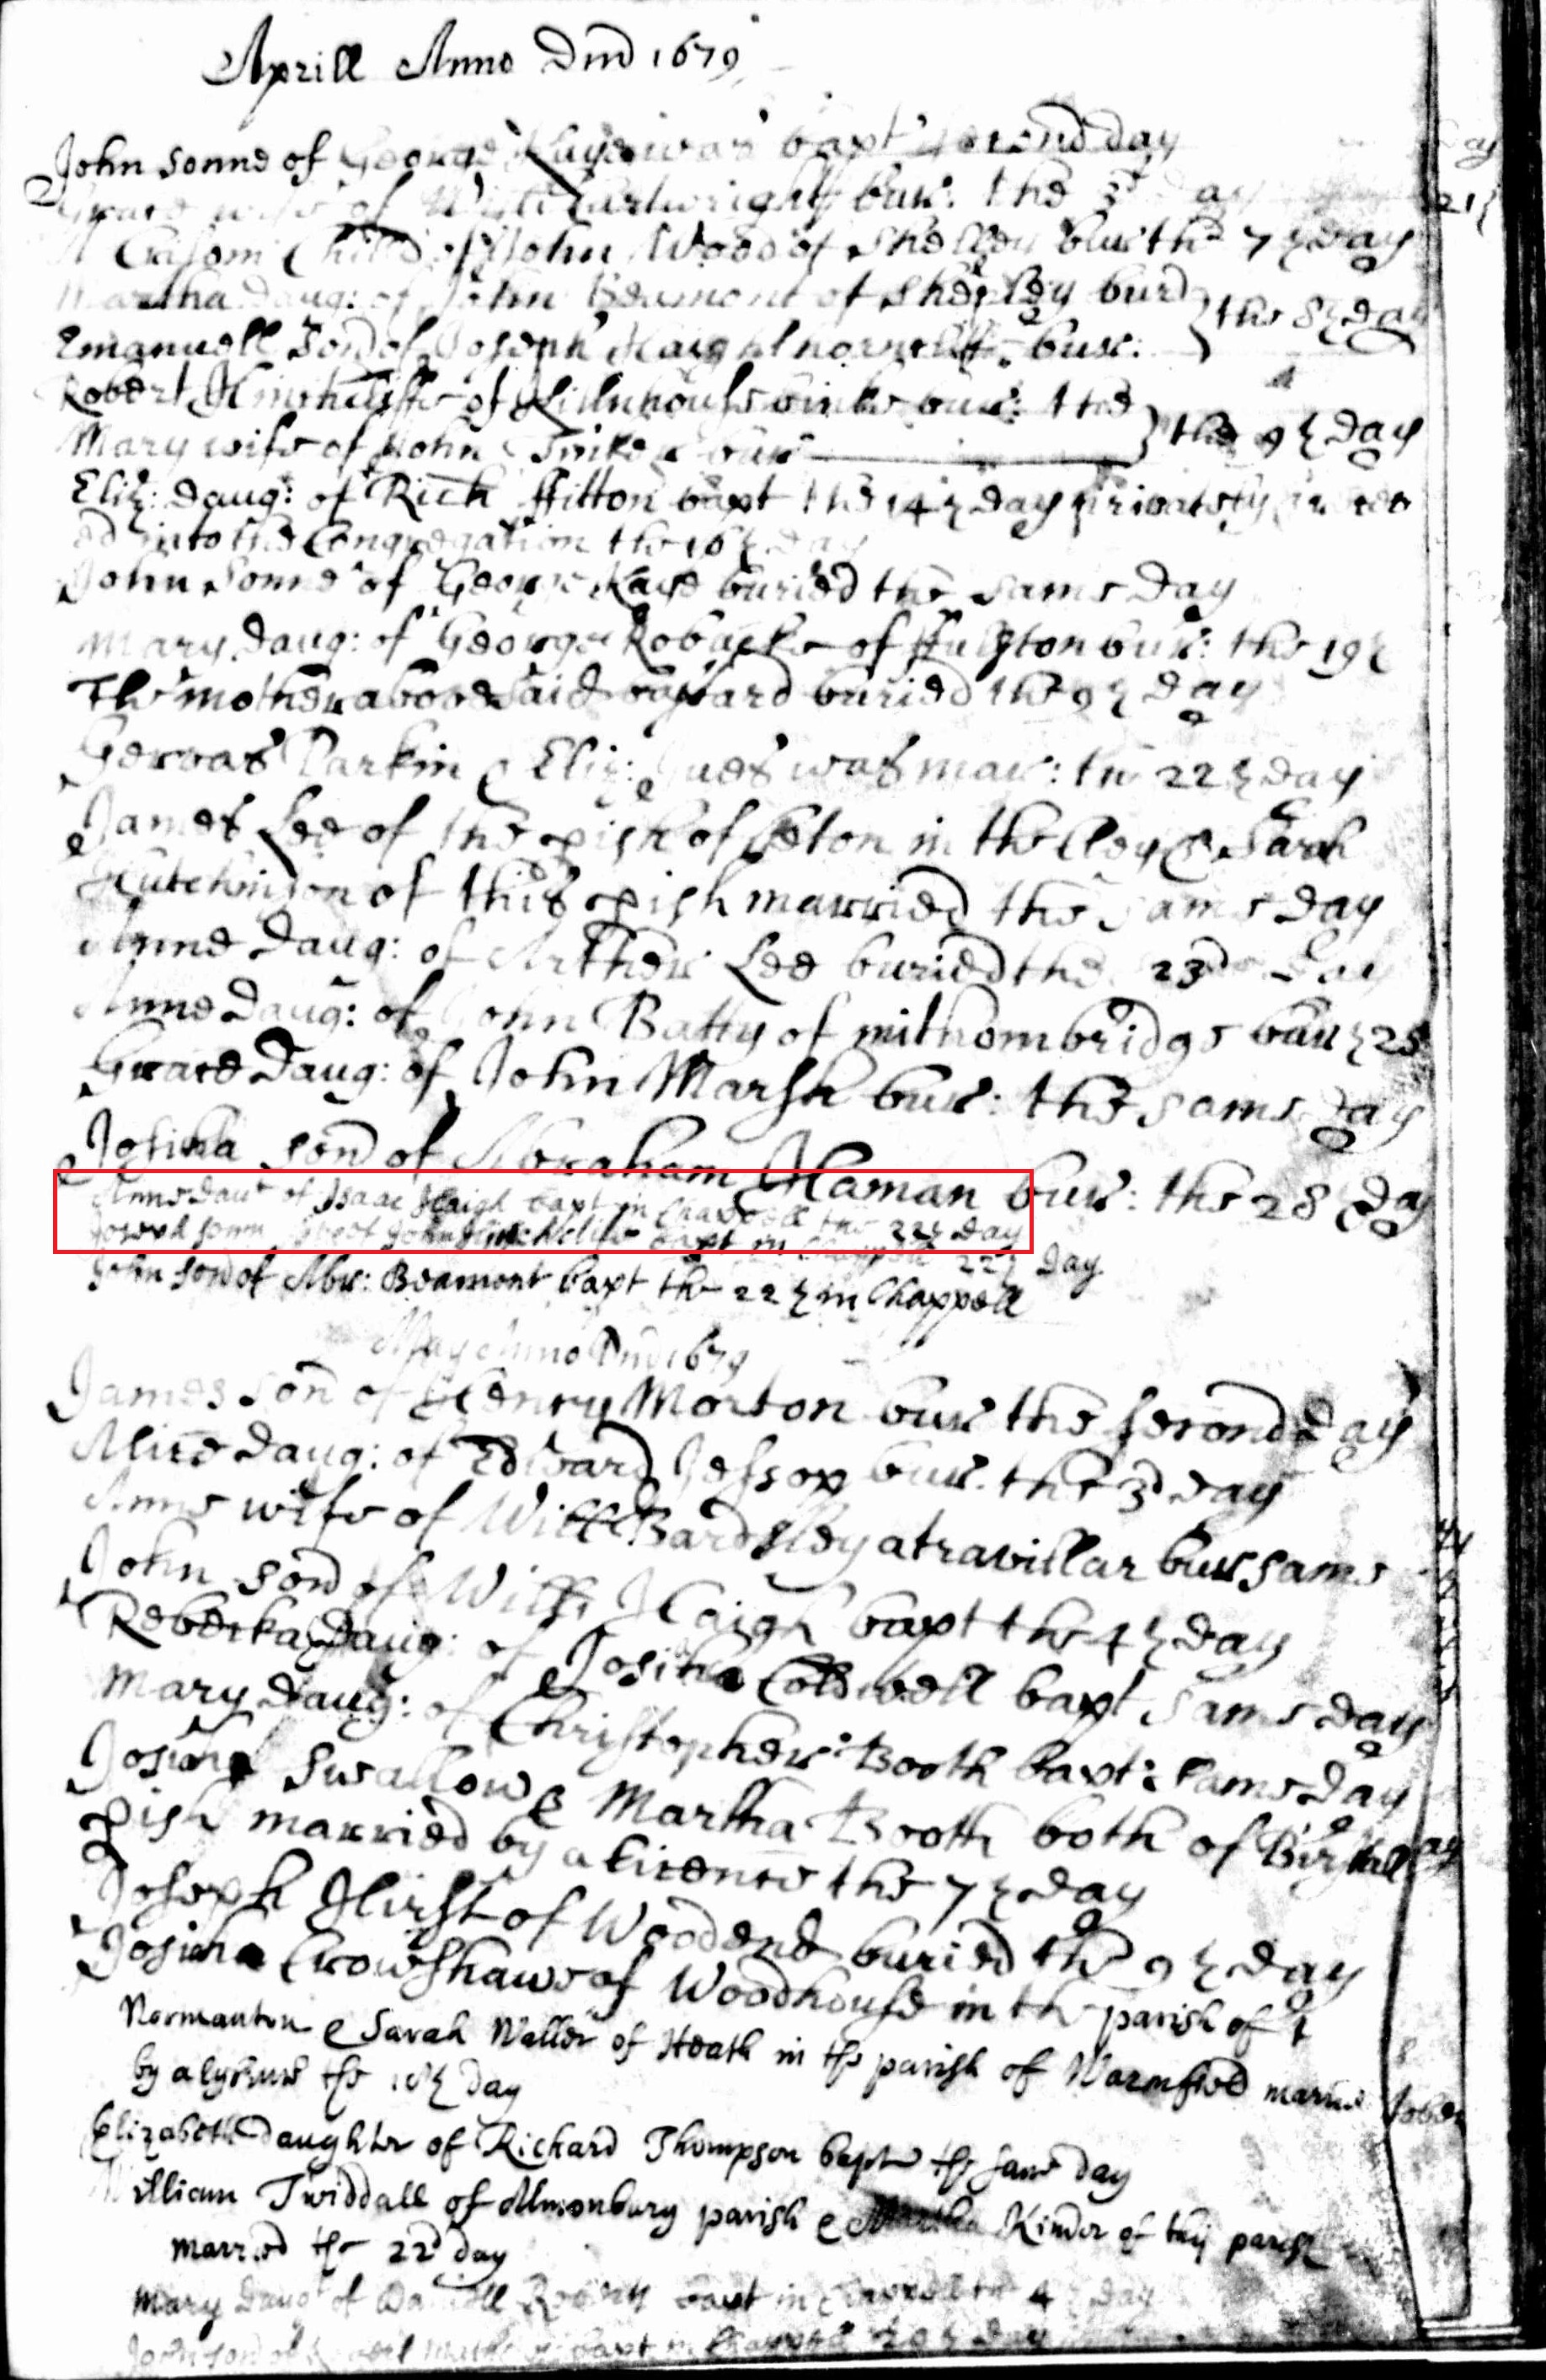 Aprill Anno Dnd 1679
John sonne of George Kaye was bapt second day
Grace wife of Will Cartwright bur: the 3d day
A Crisom Child of John Wood of Shelley bur the 7th day
Martha Daug: of John Beamont of Shepley burd } the 8th day
Emanuell Son of Joseph bur:
Robert Hinchliffe of bur: the } the 9th day
Mary wife of John Tinker bur
Eliz: Daug: of Rich ffitton bapt the 14th day privately
ed into the Congregation the 16th day
John Sonne of George Kaye buried the same day
Mary Daug: of George Robucke of ffulston bur: the 19th
The mother abovesaid buried the 9th day
Gervas Parkin & Eliz: was mar: the 22th day
James Lee of the pish of in the Cley & Sarah
Hutchinson of this pish married the same day
Anne Daug: of Arther Lee buried the 23d day
Anne Daug: of John Batty of milnombridge bur th 25
Grace Daug: of John Marsh bur: the same day
Josuha son of Abraham Haman bur: the 28th day
Anne Dau of Isaac Haigh bapt in Chappell the 22th day
Joseph sonn of John Hinchcliffe bapt in Chappell 22th day
John son of Abr: Beamont bapt the 22th in Chappell
May Anno Dnd 1679
James son of Henry Morton bur the second day
Alice Daug: of Edward Jessop bur. the 3d day
Anne wife of Will Bardsley atravillar bur same
John son of Will Haigh bapt the 4th day
Rebecka Daug: of Josuha Coldwell bapt same day
Mary Daug: of Christopher Booth bapt: same day
Josuha Swallow & Martha Booth both of Birstall
pish married by a licence the 7th day
Joseph Hirst of Woodend buried the 9th day
Josuha Crowshawe of Woodhouse in the parish of
Normanton & Sarah Waller of Heath in the parish of Warmfield married
by a lysens the 10th day
Elizabeth daughter of Richard Thompson bapt the same day
William Twiddall of Almonbury parish & Martha Kinder of this parish
married the 22d day
Mary Daug of bapt in Chappell the 4th day
John son of bapt in Chappell day